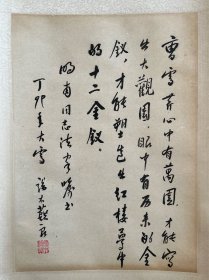 曹雪芹心中有萬園才能寫
出大觀園眼中有万千的金
釵才能塑造出紅樓夢中
的十二金釵
明甫同志法家囑书
丁卯年大雪